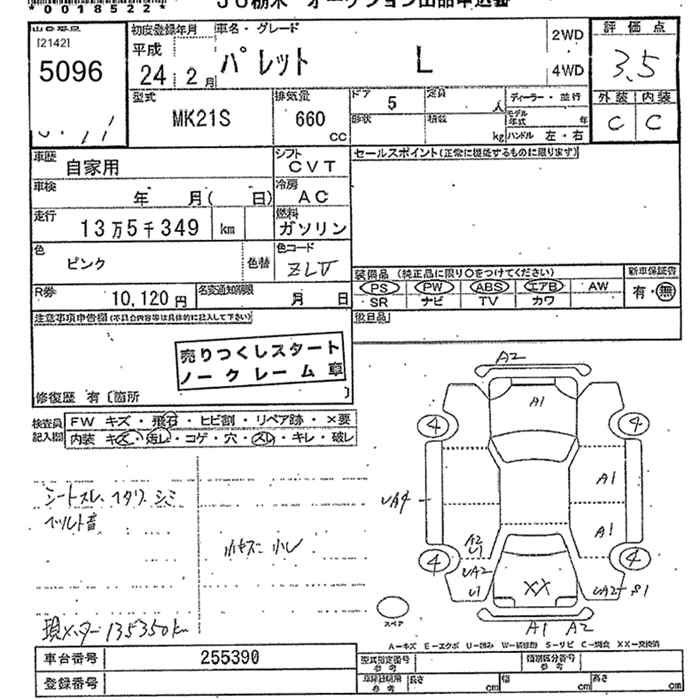 *0018522*
JU栃木 オークション出品申込書
[2142]
5096
初度登録年月
平成
24年 2月
車名・グレード
パレット L
2WD
4WD
評価点
3.5
外装 内装
C C
型式
MK21S
排気量
660
CC
ドア
5
定員
人
形状
積載
kg
ディーラー・並行
モデル年式 年
ハンドル 左・右
車歴
自家用
シフト
CVT
セールスポイント(正常に機能するものに限ります)
車検
年 月( 日)
冷房
AC
走行
13万5千349 km
燃料
ガソリン
色
ピンク
色替
色コード
ZLV
R券
10,120円
名変通知期限
月 日
装備品 (純正品に限り○をつけてください)
PS PW ABS エアB AW
SR ナビ TV カワ
新車保証書
有・無
後日品
注意事項申告欄(不具合内容等は具体的に記入して下さい)
売りつくしスタート
ノークレーム車
修復歴 有〔箇所 〕
検査員記入欄
FW キズ・飛石・ヒビ割・リペア跡・×要
内装 キズ・汚レ・コゲ・穴・スレ・キレ・破レ
シートスレ、ヘタリ、シミ
ベルト音
小キズ 小レ
現メーター135350km
A2
A1
4 4
A1
UA4
A1
A2
U1
4 4
UA2
U1
XX
UA2 S1
スペア
A1 A2
A-キズ E-エクボ U-凹み W-補修跡 S-サビ C-腐食 XX-交換済
車台番号
255390
登録番号
型式指定番号
参考
類別区分番号
参考
車庫証明用
参考
長さ cm
幅 cm
高さ cm